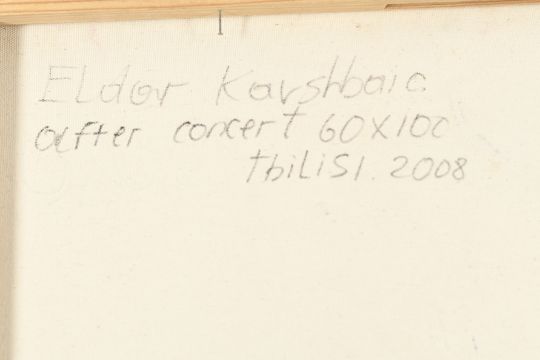 Eldar Karshbaia
after concert 60x100
tbiliSI. 2008